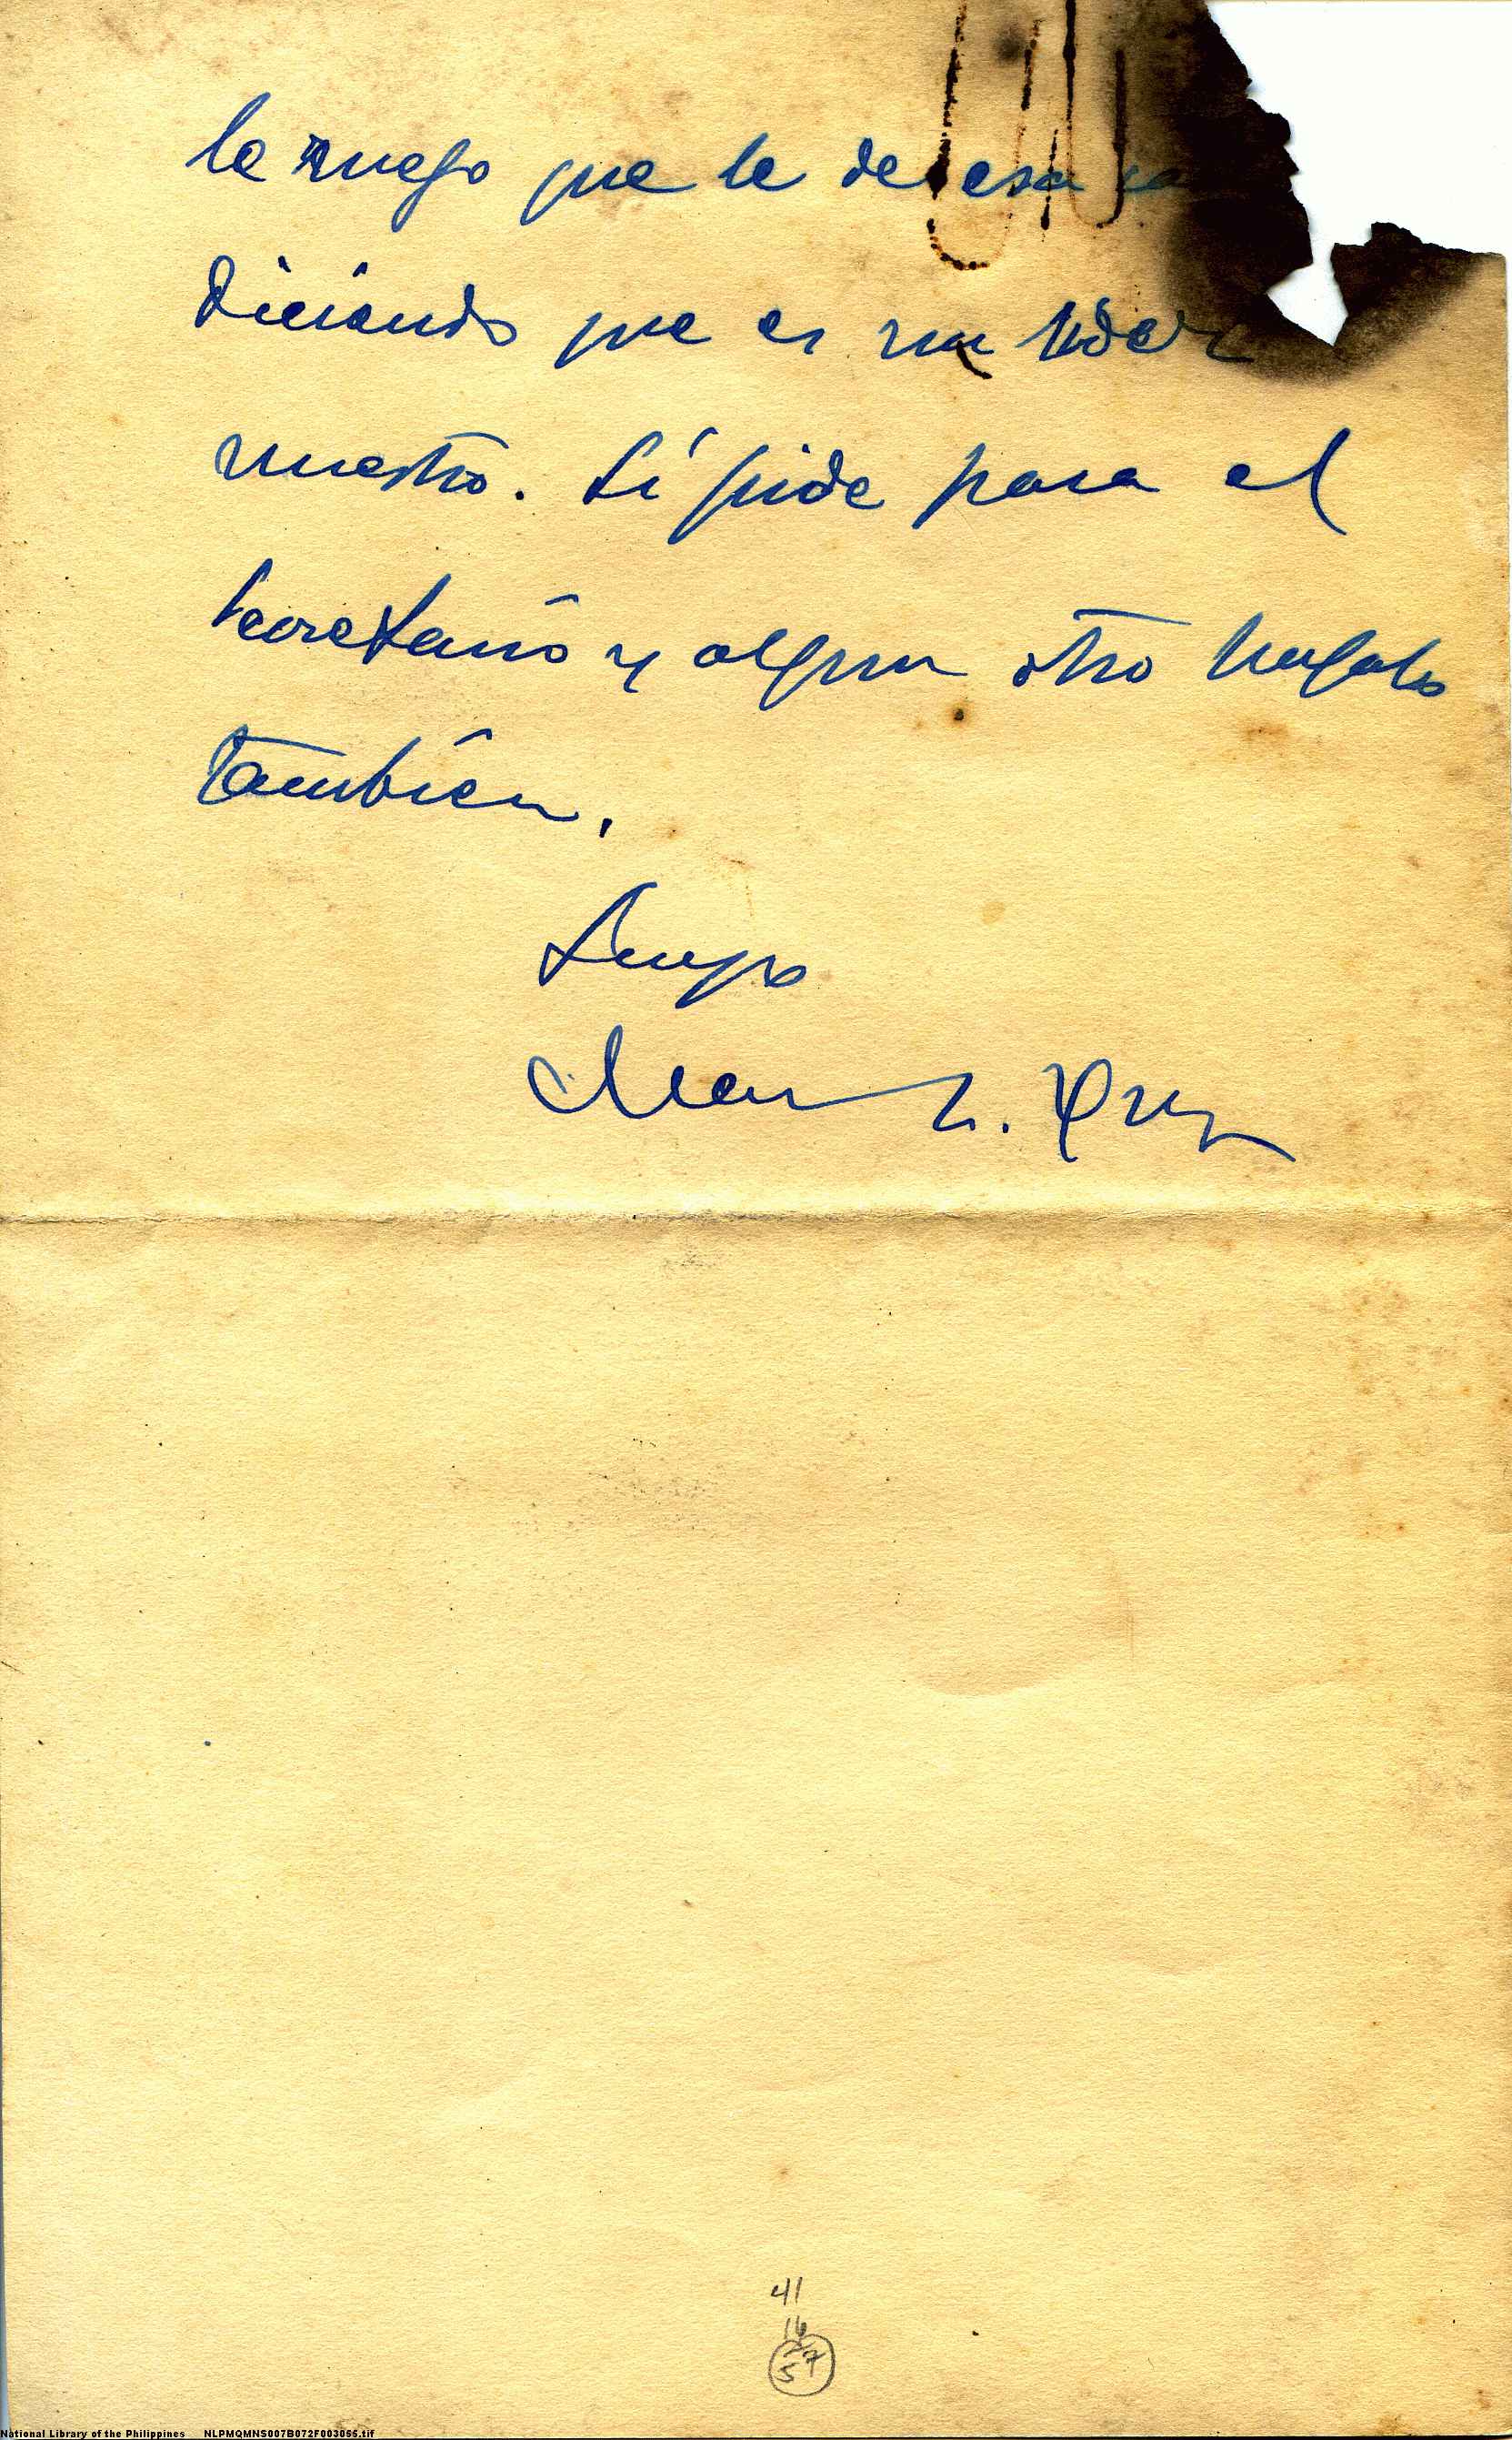 le ruego que le de esa
diciendo que es un lider
nuestro. Si pide para el
secretario y algun otro
tambien.
Suyo
41
16
57
National Library of the Philippines NLPMQMNS007B072F003055.tif